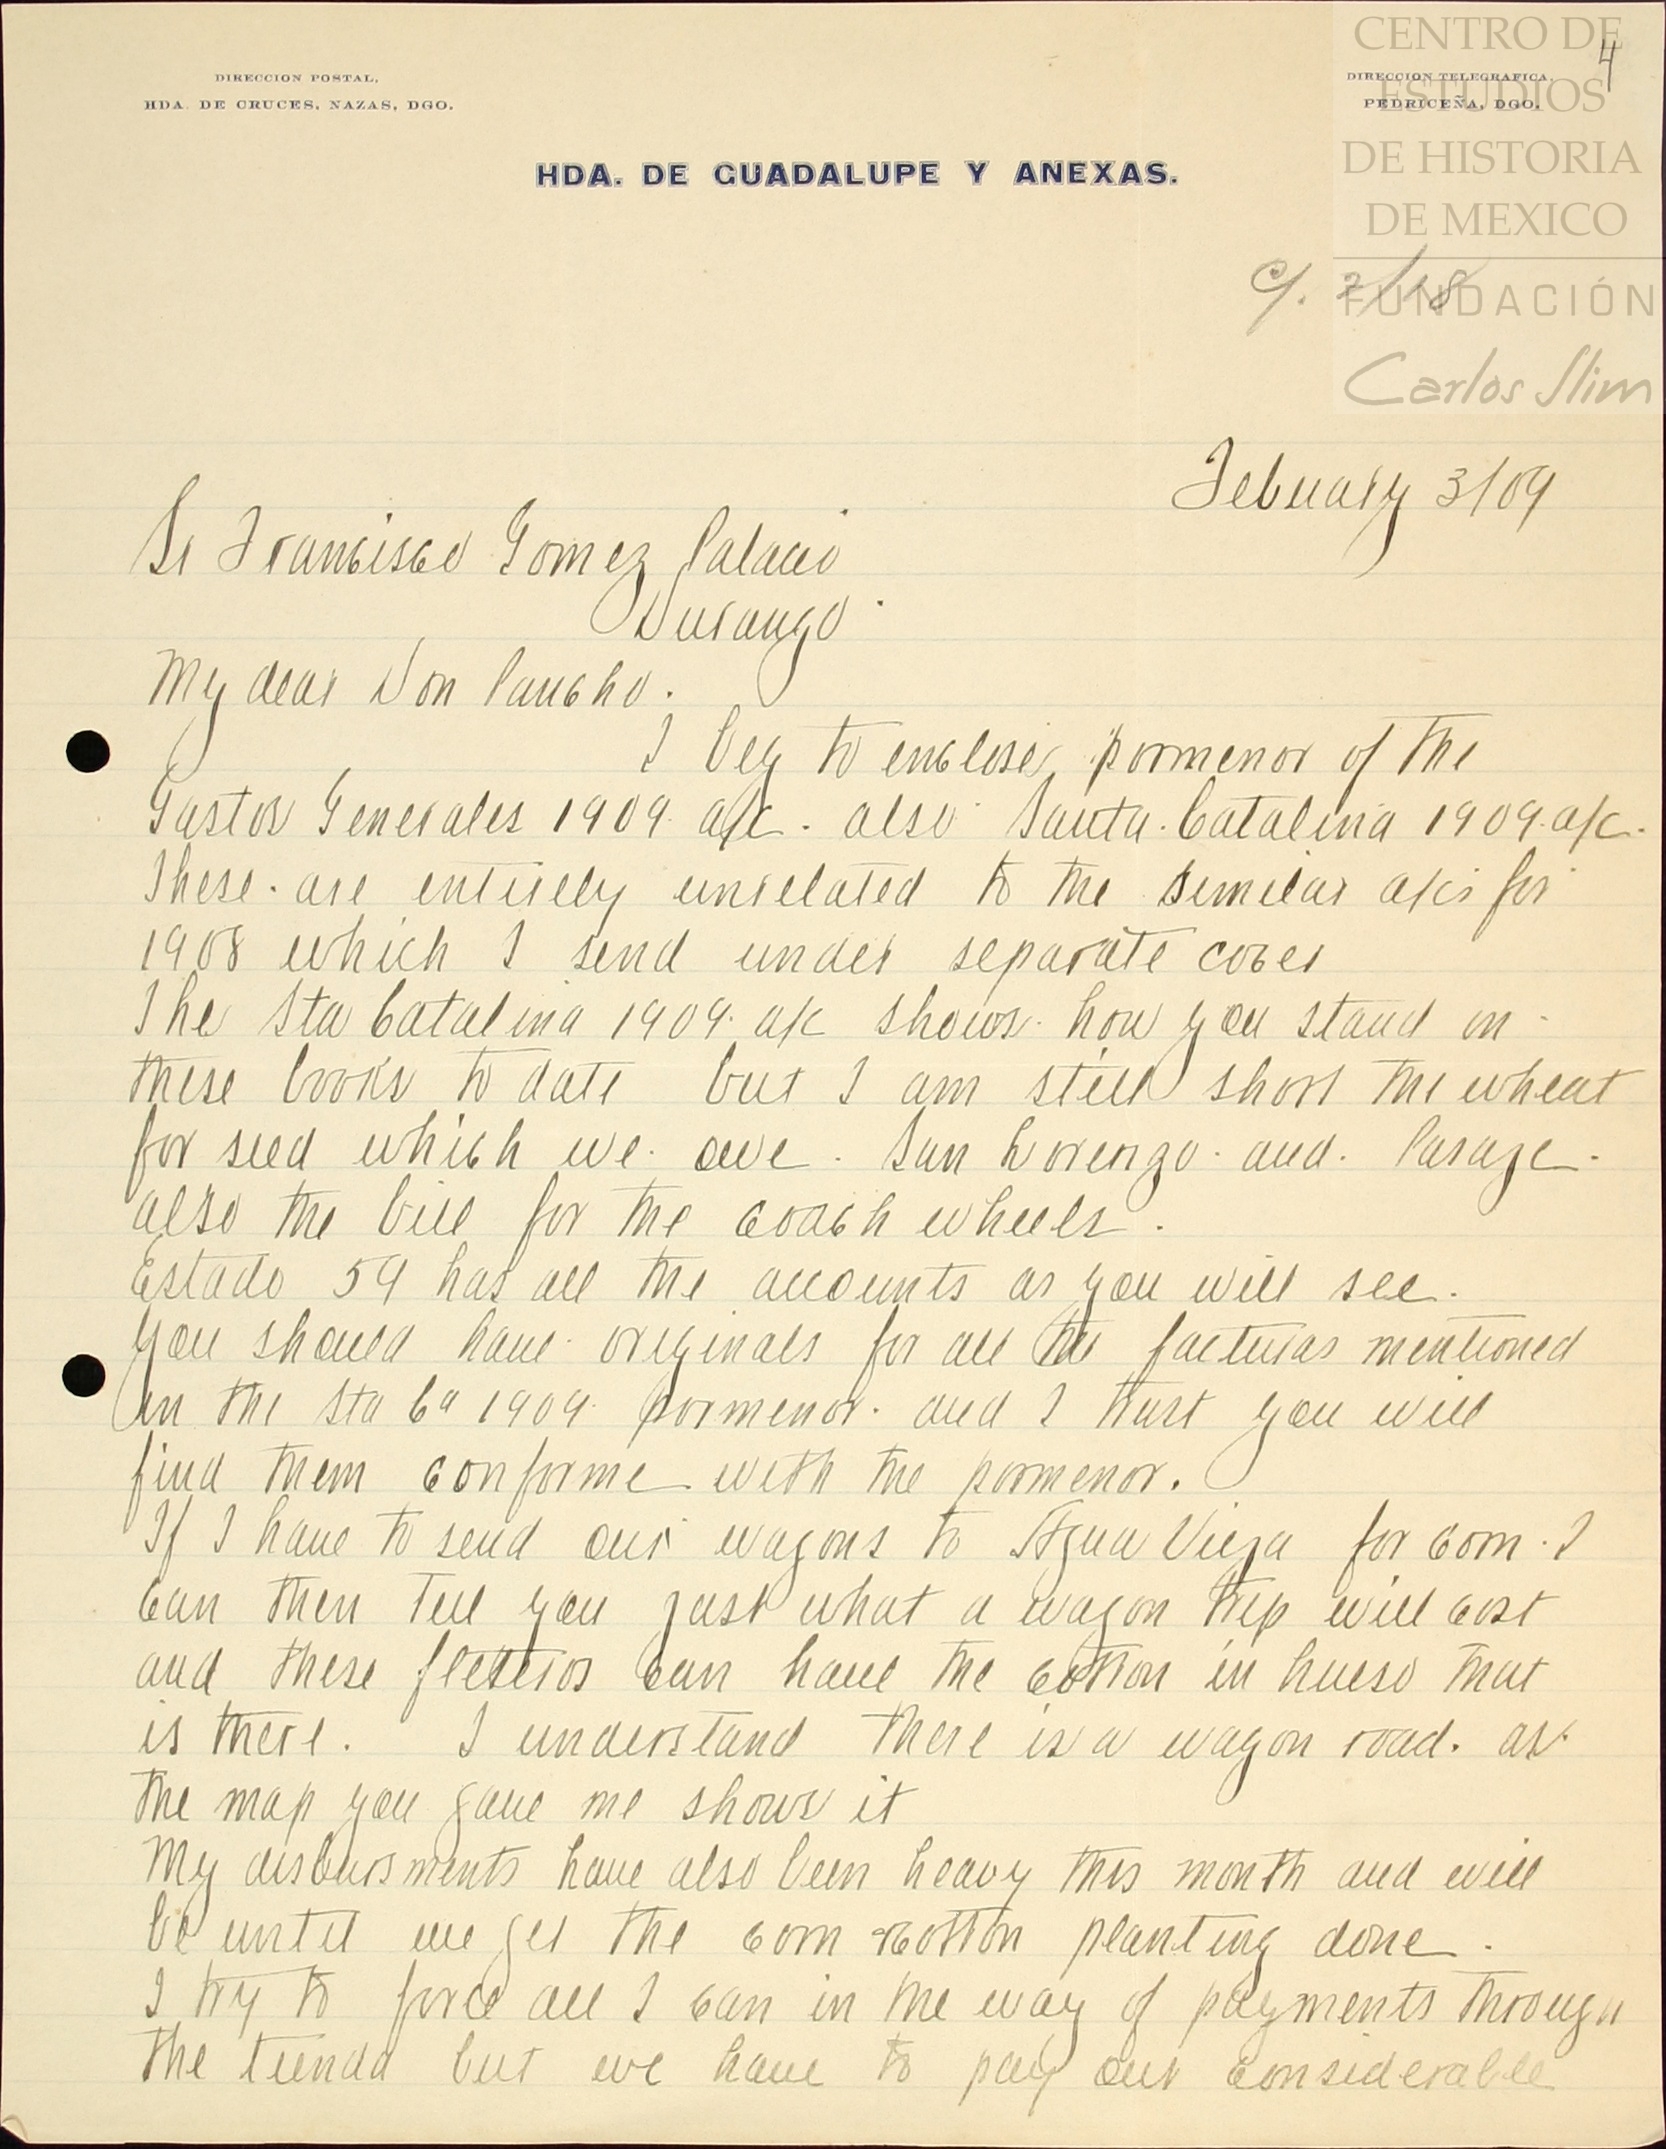 DIRECCION POSTAL,
HDA. DE CRUCES, NAZAS, DGO.
DIRECCION TELEGRAFICA.
PEDRICEÑA, DGO.
4
CENTRO DE
ESTUDIOS
DE HISTORIA
DE MEXICO
FUNDACIÓN
Carlos Slim
HDA. DE GUADALUPE Y ANEXAS.
c/. 2/18
Febuary 3/09
Sr Francisco Gomez Palacio
Durango
My dear Don Pancho.
I beg to enclose pormenor of the
Gastos Generales 1909 a/c. also Santa Catalina 1909 a/c.
These are entirely unrelated to the similar a/cs for
1908 which I send under separate cover
The Sta Catalina 1909 a/c shows how you stand on
these books to date but I am still short the wheat
for seed which we owe San Lorenzo and Pasaje.
also the bill for the coach wheels.
Estado 59 has all the accounts as you will see.
You should have originals for all the facturas mentioned
in the Sta Ca 1909 pormenor. and I trust you will
find them conforme with the pormenor.
If I have to send our wagons to Agua Vieja for corn. I
can then tell you just what a wagon trip will cost
and these fleteros can have the cotton in hueso that
is there. I understand there is a wagon road. as
the map you gave me shows it
My disbursments have also been heavy this month and will
be until we get the corn & cotton planting done.
I try to force all I can in the way of payments through
the tienda but we have to pay our considerable